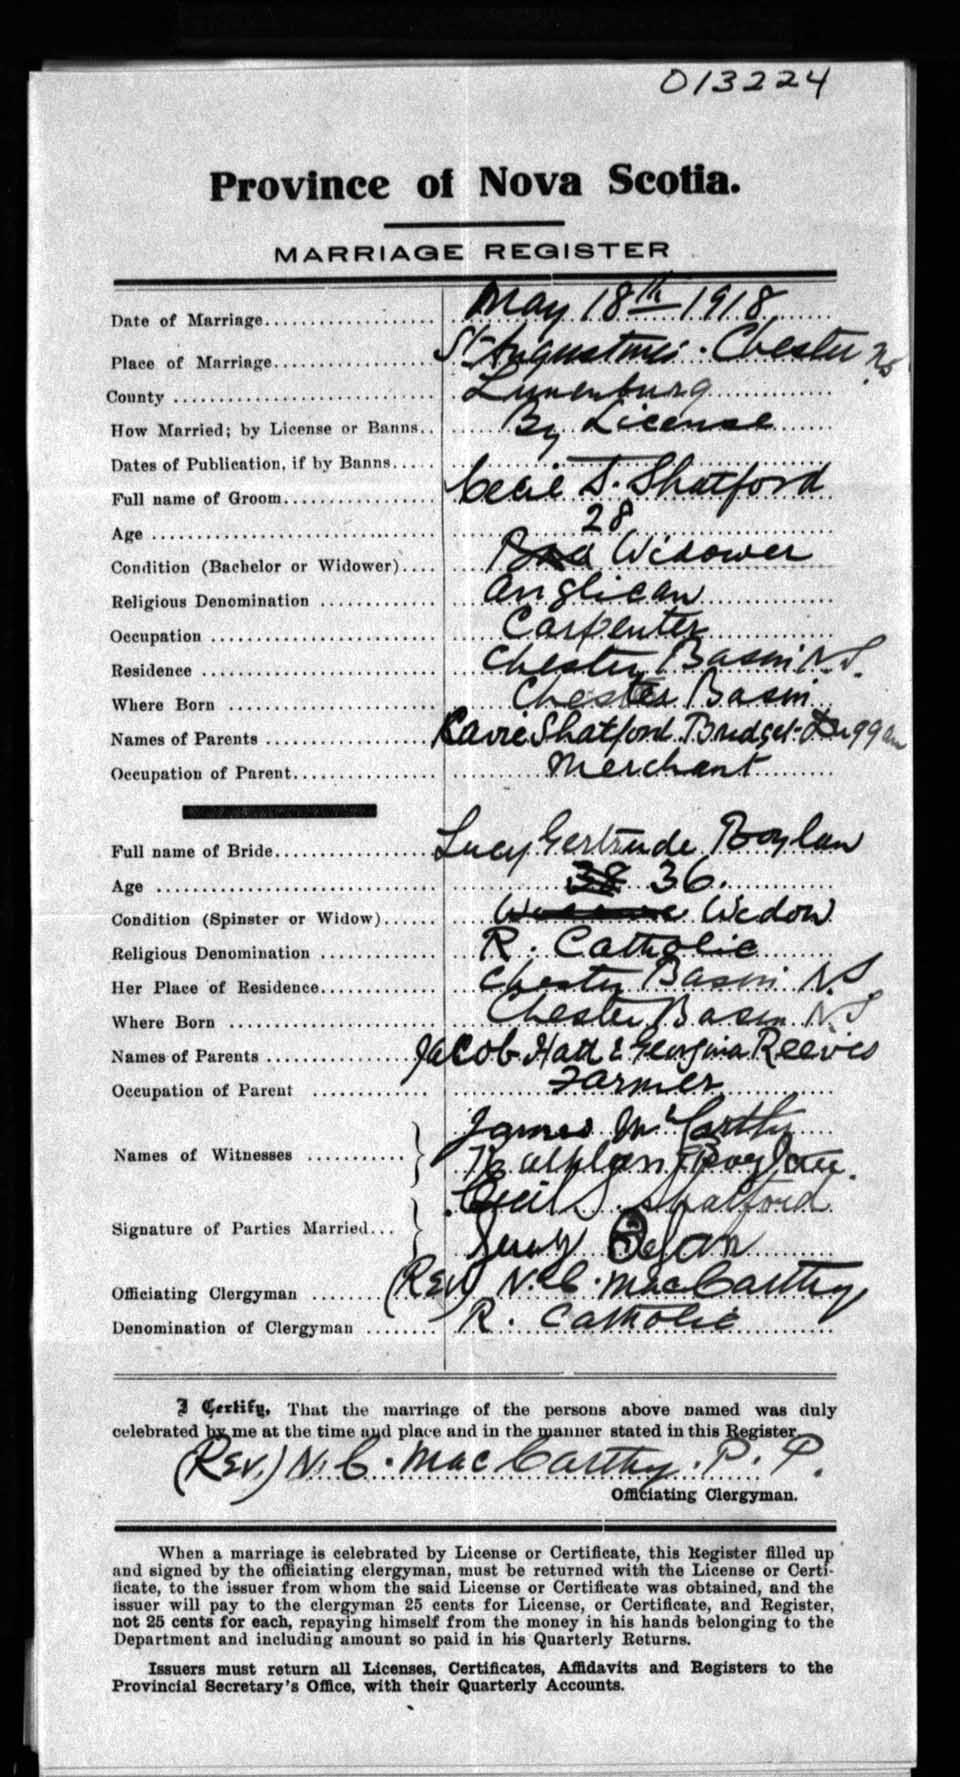 013224
Province of Nova Scotia.
MARRIAGE REGISTER
Date of Marriage May 18th 1918
Place of Marriage St Augustine's. Chester NS
County Lunenburg
How Married; by License or Banns By License
Dates of Publication, if by Banns
Full name of Groom Cecil S. Shatford
Age 28
Condition (Bachelor or Widower) Widower
Religious Denomination Anglican
Occupation Carpenter
Residence Chester Basin N.S.
Where Born Chester Basin
Names of Parents Shatford Bridget Duggan
Occupation of Parent Merchant
Full name of Bride Lucy Gertrude Boylan
Age 38 36.
Condition (Spinster or Widow) Widow
Religious Denomination R. Catholic
Her Place of Residence Chester Basin N.S
Where Born Chester Basin N.S
Names of Parents Jacob Hatt & Georgina Reeves
Occupation of Parent Farmer
Names of Witnesses James McCarthy
Boylan.
Signature of Parties Married Cecil S. Shatford
Lucy
Officiating Clergyman (Rev) N. C. MacCarthy
Denomination of Clergyman R. Catholic
I Certify, That the marriage of the persons above named was duly
celebrated by me at the time and place and in the manner stated in this Register.
(Rev.) N. C. MacCarthy. P. P.
Officiating Clergyman.
When a marriage is celebrated by License or Certificate, this Register filled up
and signed by the officiating clergyman, must be returned with the License or Certi-
ficate, to the issuer from whom the said License or Certificate was obtained, and the
issuer will pay to the clergyman 25 cents for License, or Certificate, and Register,
not 25 cents for each, repaying himself from the money in his hands belonging to the
Department and including amount so paid in his Quarterly Returns.
Issuers must return all Licenses, Certificates, Affidavits and Registers to the
Provincial Secretary's Office, with their Quarterly Accounts.